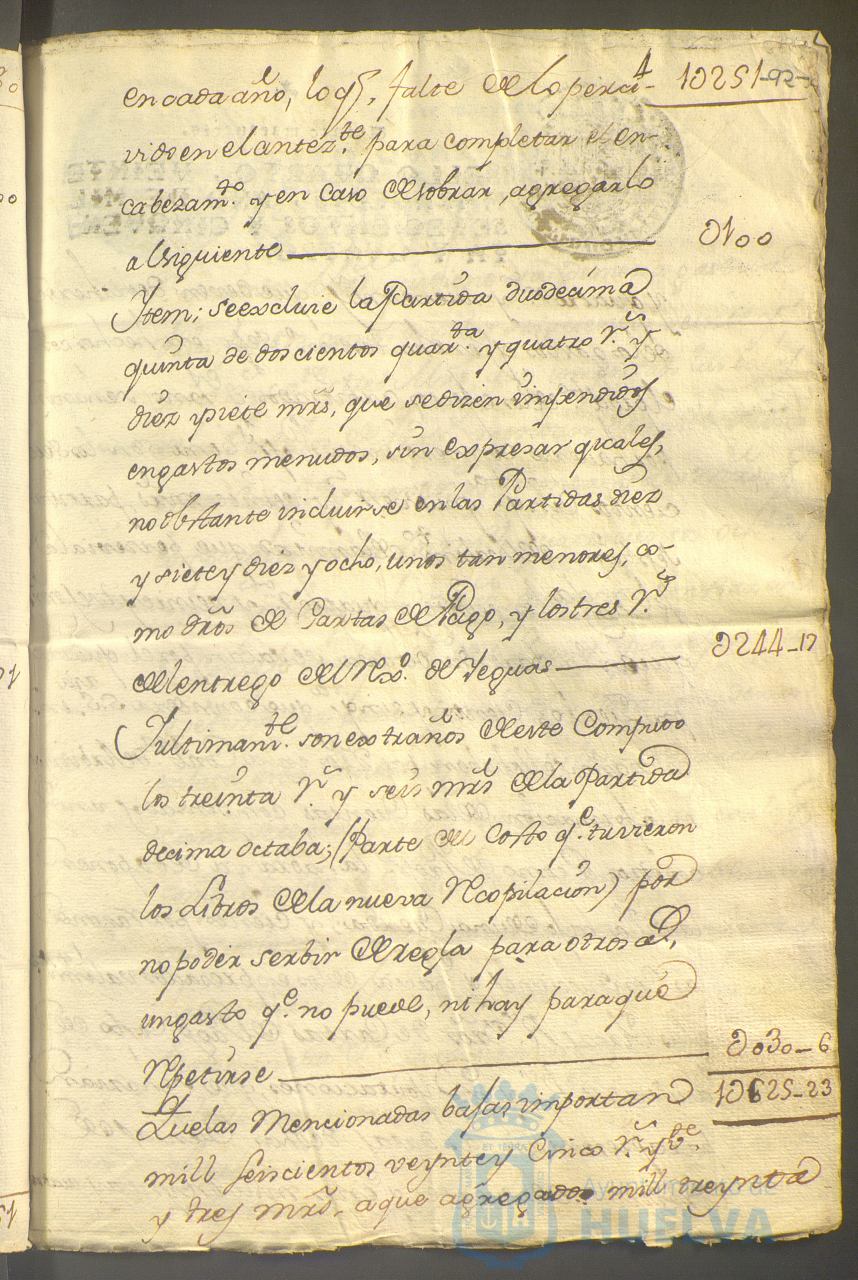 en cada año, lo q.e falte de lo perci- 1ↄ251-92-
vido en el antez.te para completar el en-
cabezam.to y en caso de sobrar, agregarlo
al siguiente ↄ100
Item; se excluie la Partida duodecima
quinta de doscientos quar.ta y quatro r.s y
diez y siete mrs, que se dizen impendidos
en gastos menudos, sin expresar quales,
no obstante incluirse en las Partidas diez
y siete y diez y ocho, unos tan menores, co-
mo dros de Cartas de Pago, y los tres r.s
del entrego del Rexo. de Yeguas ↄ244-17
Y ultimam.te son extraños de este Computo
los treinta r.s y seis mrs de la Partida
decima octaba; (Parte del Costo q.e tuvieron
los Libros de la nueva Recopilacion) por
no poder serbir de regla para otros a.s,
un gasto q.e no puede, ni hay para què
Repetirse ↄ030-6
Que las Mencionadas bajas importan 1ↄ625-23
mill seiscientos veynte y Cinco r.s y v.te
y tres mrs. a que agregados mill treynta
Ayuntamiento de
HUELVA